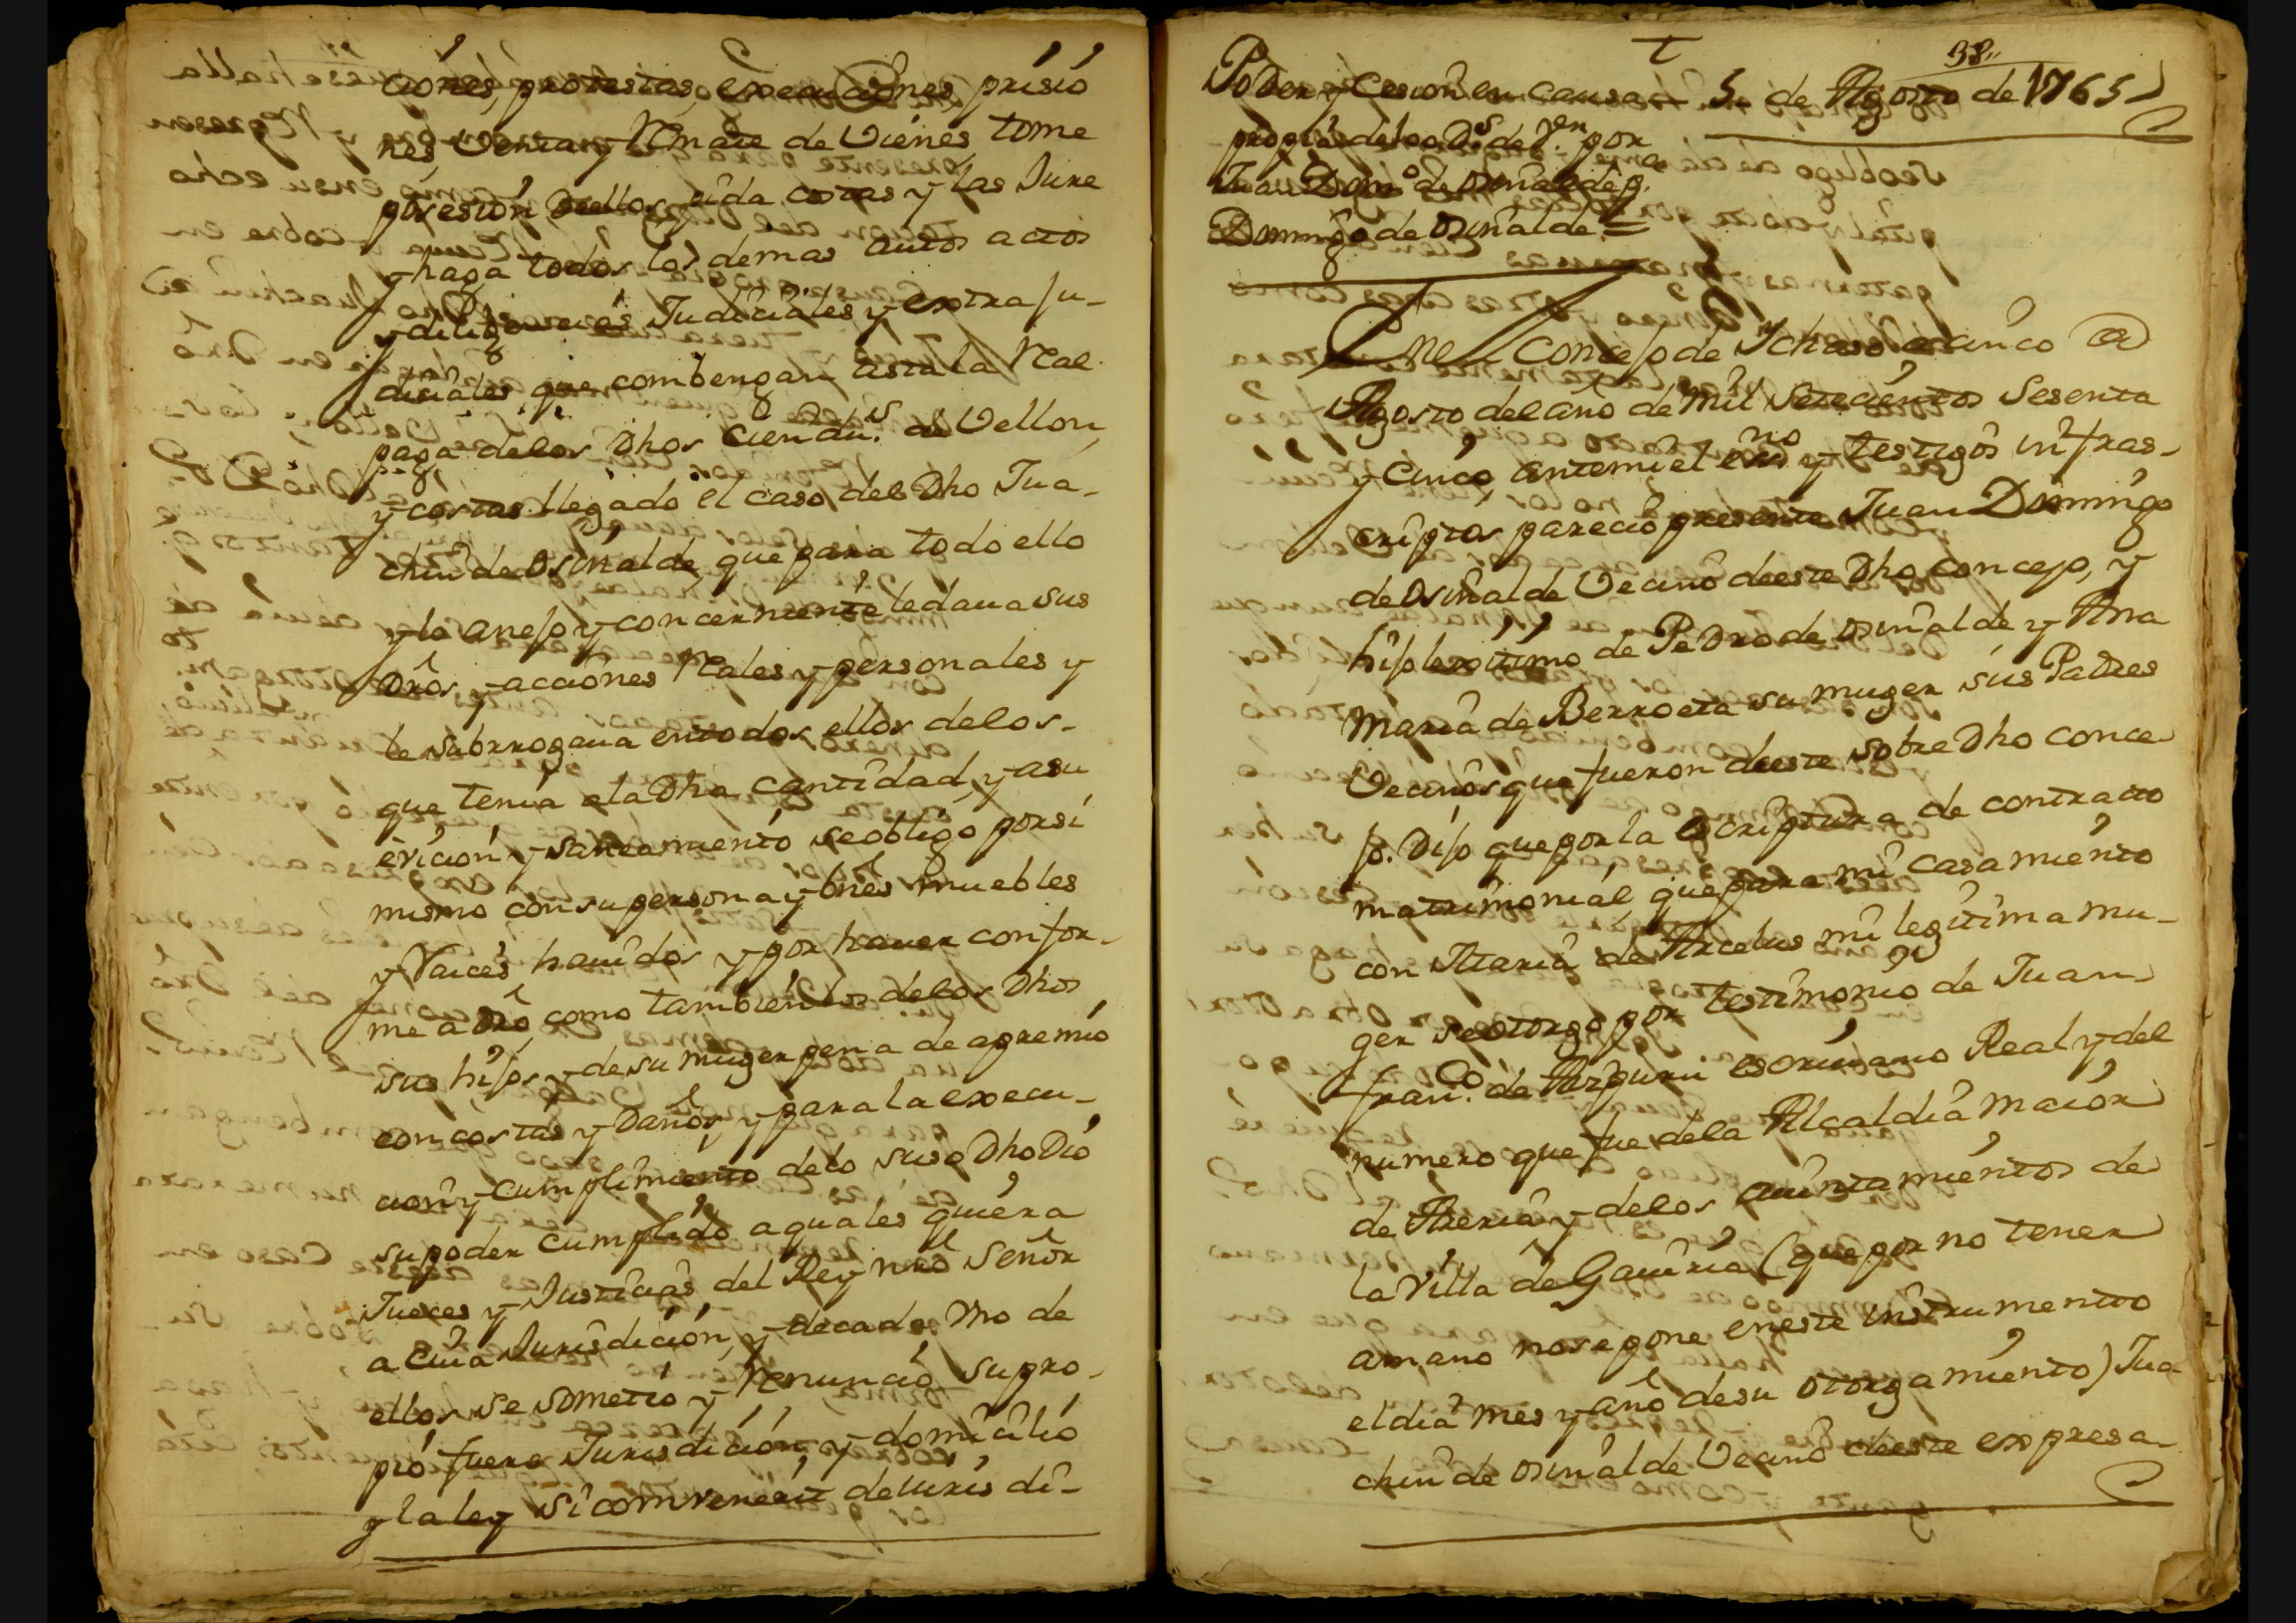 ciones, protestas, execuciones, prisio
nes Venta y Rmate de Vienes, tome
posesion dellos, pida costas y las Jure
y haga todos los demas autos actos
y diligencias Judiciales y extraju-
diciales que combengan asta la Real
paga delos Dhos cien du.s de Vellon,
y costas llegado el caso del Dho Jua-
chin de Osinalde, que para todo ello
y lo anejo y concerniente ledaua sus
Dros, y acciones Rales y personales y
le subrrogaua entodos ellos delos-
que tenia ala Dha cantidad, y asu
evicion y saneamiento se obligo porsi
mismo con su persona y bnes muebles
y Raices hauidos y por hauer confor-
me a dro, como tambien los delos Dhos
sus hijos y de su muger pena de apremio
con costas y Daños, y para la execu-
cion y cumplimiento delo suso Dho Dio
su poder cumplido a quales quiera
Jueces y Justicias del Rey nro Señor
a cuia Jurisdicion, y decada Vno de
ellos se sometio y renuncio su pro-
pio fuero Jurisdicion, y domicilio
y la ley si combenerit de Juris di-
38,,
Poder y Cesion en causa 5 de Agosto de 1765
propia delos D.s de V.en por
Juan Dom.o de Osinalde p.a
Domingo de Osinalde =
En el Concejo de Ychaso a cinco @
Agosto del año de mil Setecientos Sesenta
y cinco, ante mi el es.no y testigos infras-
criptos parecio presente Juan Domingo
de Osinalde Vecino deeste Dho concejo, y
hijo lexitimo de Pedro de Osinalde y Ana
Maria de Berroeta su muger sus Padres
Vecinos que fueron deeste sobre Dho conce
jo. Dijo que por la escriptura de contrato
matrimonial, que para mi casamiento
con Maria de Arcelus mi legitima mu-
ger se otorgo por testimonio de Juan
Fran.co de Azpuru escriuano Real y del
numero que fue dela Alcaldia maior
de Areria y delos aiuntamientos de
la Villa de Gauiria (que por no tener
amano nose pone eneste instrumento
el dia mes y año desu otorgamiento) Jua-
chin de Osinalde Vecino deeste expresa-